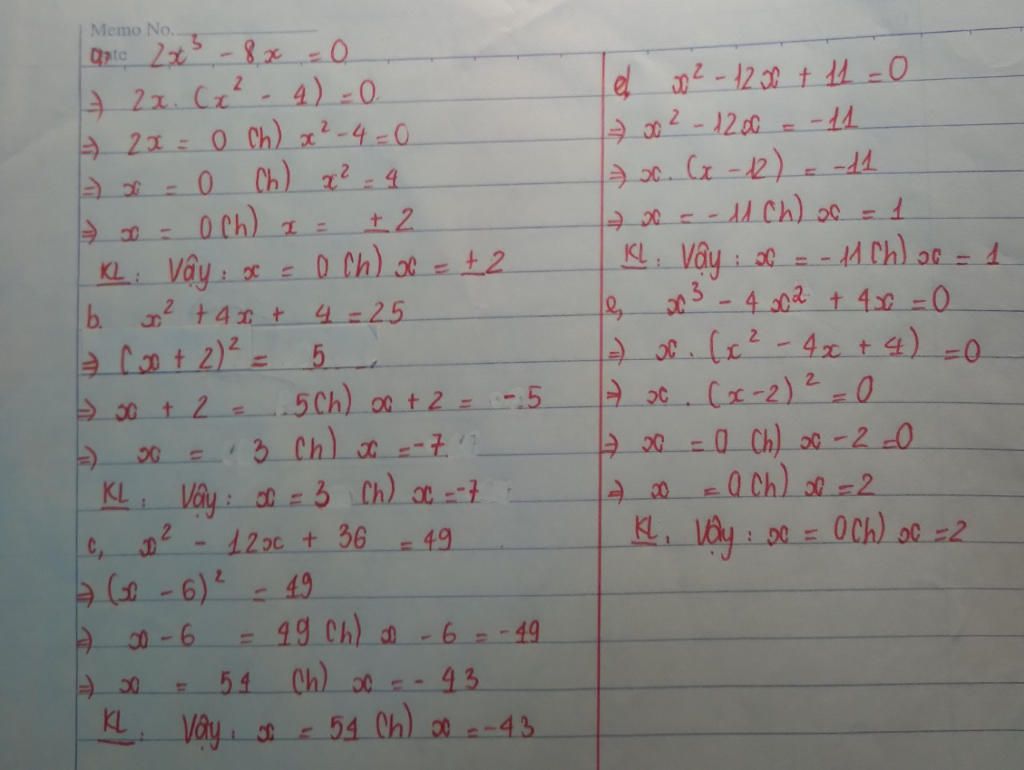 Memo No.
a, 2x³ - 8x = 0
⇒ 2x. (x² - 4) = 0
⇒ 2x = 0 (h) x² - 4 = 0
⇒ x = 0 (h) x² = 4
⇒ x = 0 (h) x = ±2
KL: Vậy: x = 0 (h) x = ±2
b. x² + 4x + 4 = 25
⇒ (x + 2)² = 5
⇒ x + 2 = 5 (h) x + 2 = -5
⇒ x = 3 (h) x = -7
KL: Vậy: x = 3 (h) x = -7
c, x² - 12x + 36 = 49
⇒ (x - 6)² = 49
⇒ x - 6 = 49 (h) x - 6 = -49
⇒ x = 54 (h) x = -43
KL: Vậy: x = 54 (h) x = -43
d, x² - 12x + 11 = 0
⇒ x² - 12x = -11
⇒ x. (x - 12) = -11
⇒ x = -11 (h) x = 1
KL: Vậy: x = -11 (h) x = 1
e, x³ - 4x² + 4x = 0
⇒ x. (x² - 4x + 4) = 0
⇒ x. (x - 2)² = 0
⇒ x = 0 (h) x - 2 = 0
⇒ x = 0 (h) x = 2
KL: Vậy: x = 0 (h) x = 2